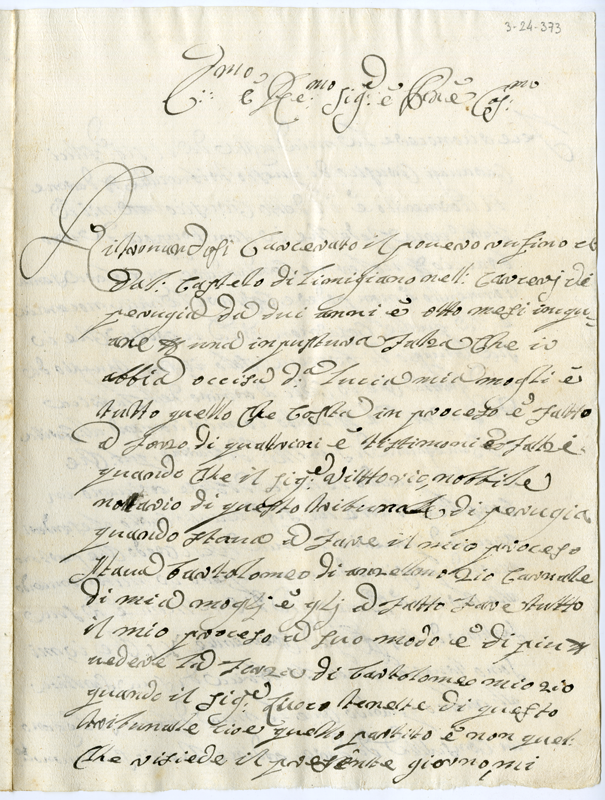 3-24-373
E:mo è Re:mo sig:e è
Ritrovandosi Carcerato il povero rufino
dal: Castelo di limigiano nelli Carcerj di
perugia da dui anni è otto mesi
una inpustura falza che io
abbia occisa d:a lucia mia mogli è
tutto quello che Costa in proceso è fatto
a forzo di quattrini è tistimoni falzi
quando che il sig:e Vittorio nobbile
notario di questo tribunale di perugia
quando stava a fare il mio proceso
stava bartolomeo di anzelmo zio Carnale
di mia moglj è glj a fatto fare tutto
il mio proceso a suo modo è di piu
vedere la forza di bartolomeo mio zio
quando il sig:e Luoco tenete di questo
tribunale cioe quello partito è non quel
che risiede il presente giorno, mi